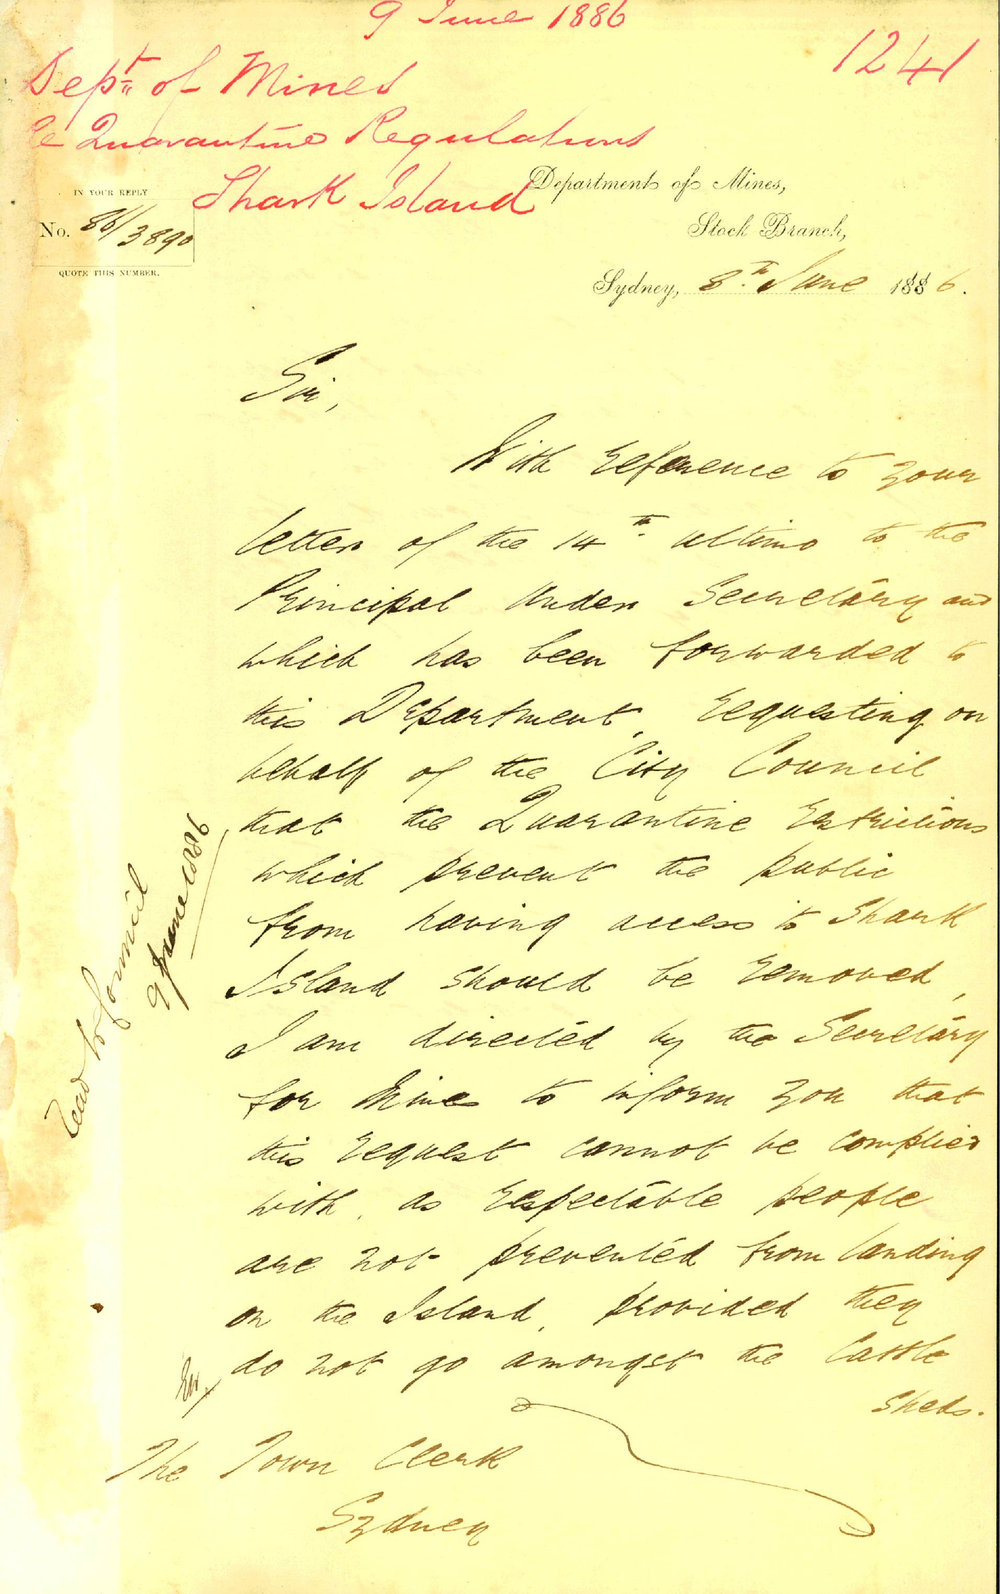 9 June 1886
1241
Dept. of Mines
re Quarantine Regulations
Shark Island
IN YOUR REPLY
No. 86/3890
QUOTE THIS NUMBER.
Department of Mines,
Stock Branch,
Sydney, 8th June 1886.
Sir,
With reference to your
letter of the 14th ultimo to the
Principal Under Secretary and
which has been forwarded to
this Department, requesting on
behalf of the City Council
that the Quarantine restrictions
which prevent the public
from having access to Shark
Island should be removed,
I am directed by the Secretary
for Mines to inform you that
this request cannot be complied
with, as respectable people
are not prevented from landing
on the Island, provided they
do not go amongst the Cattle
Sheds.
The Town Clerk
Sydney
Read to Council
9 June 1886